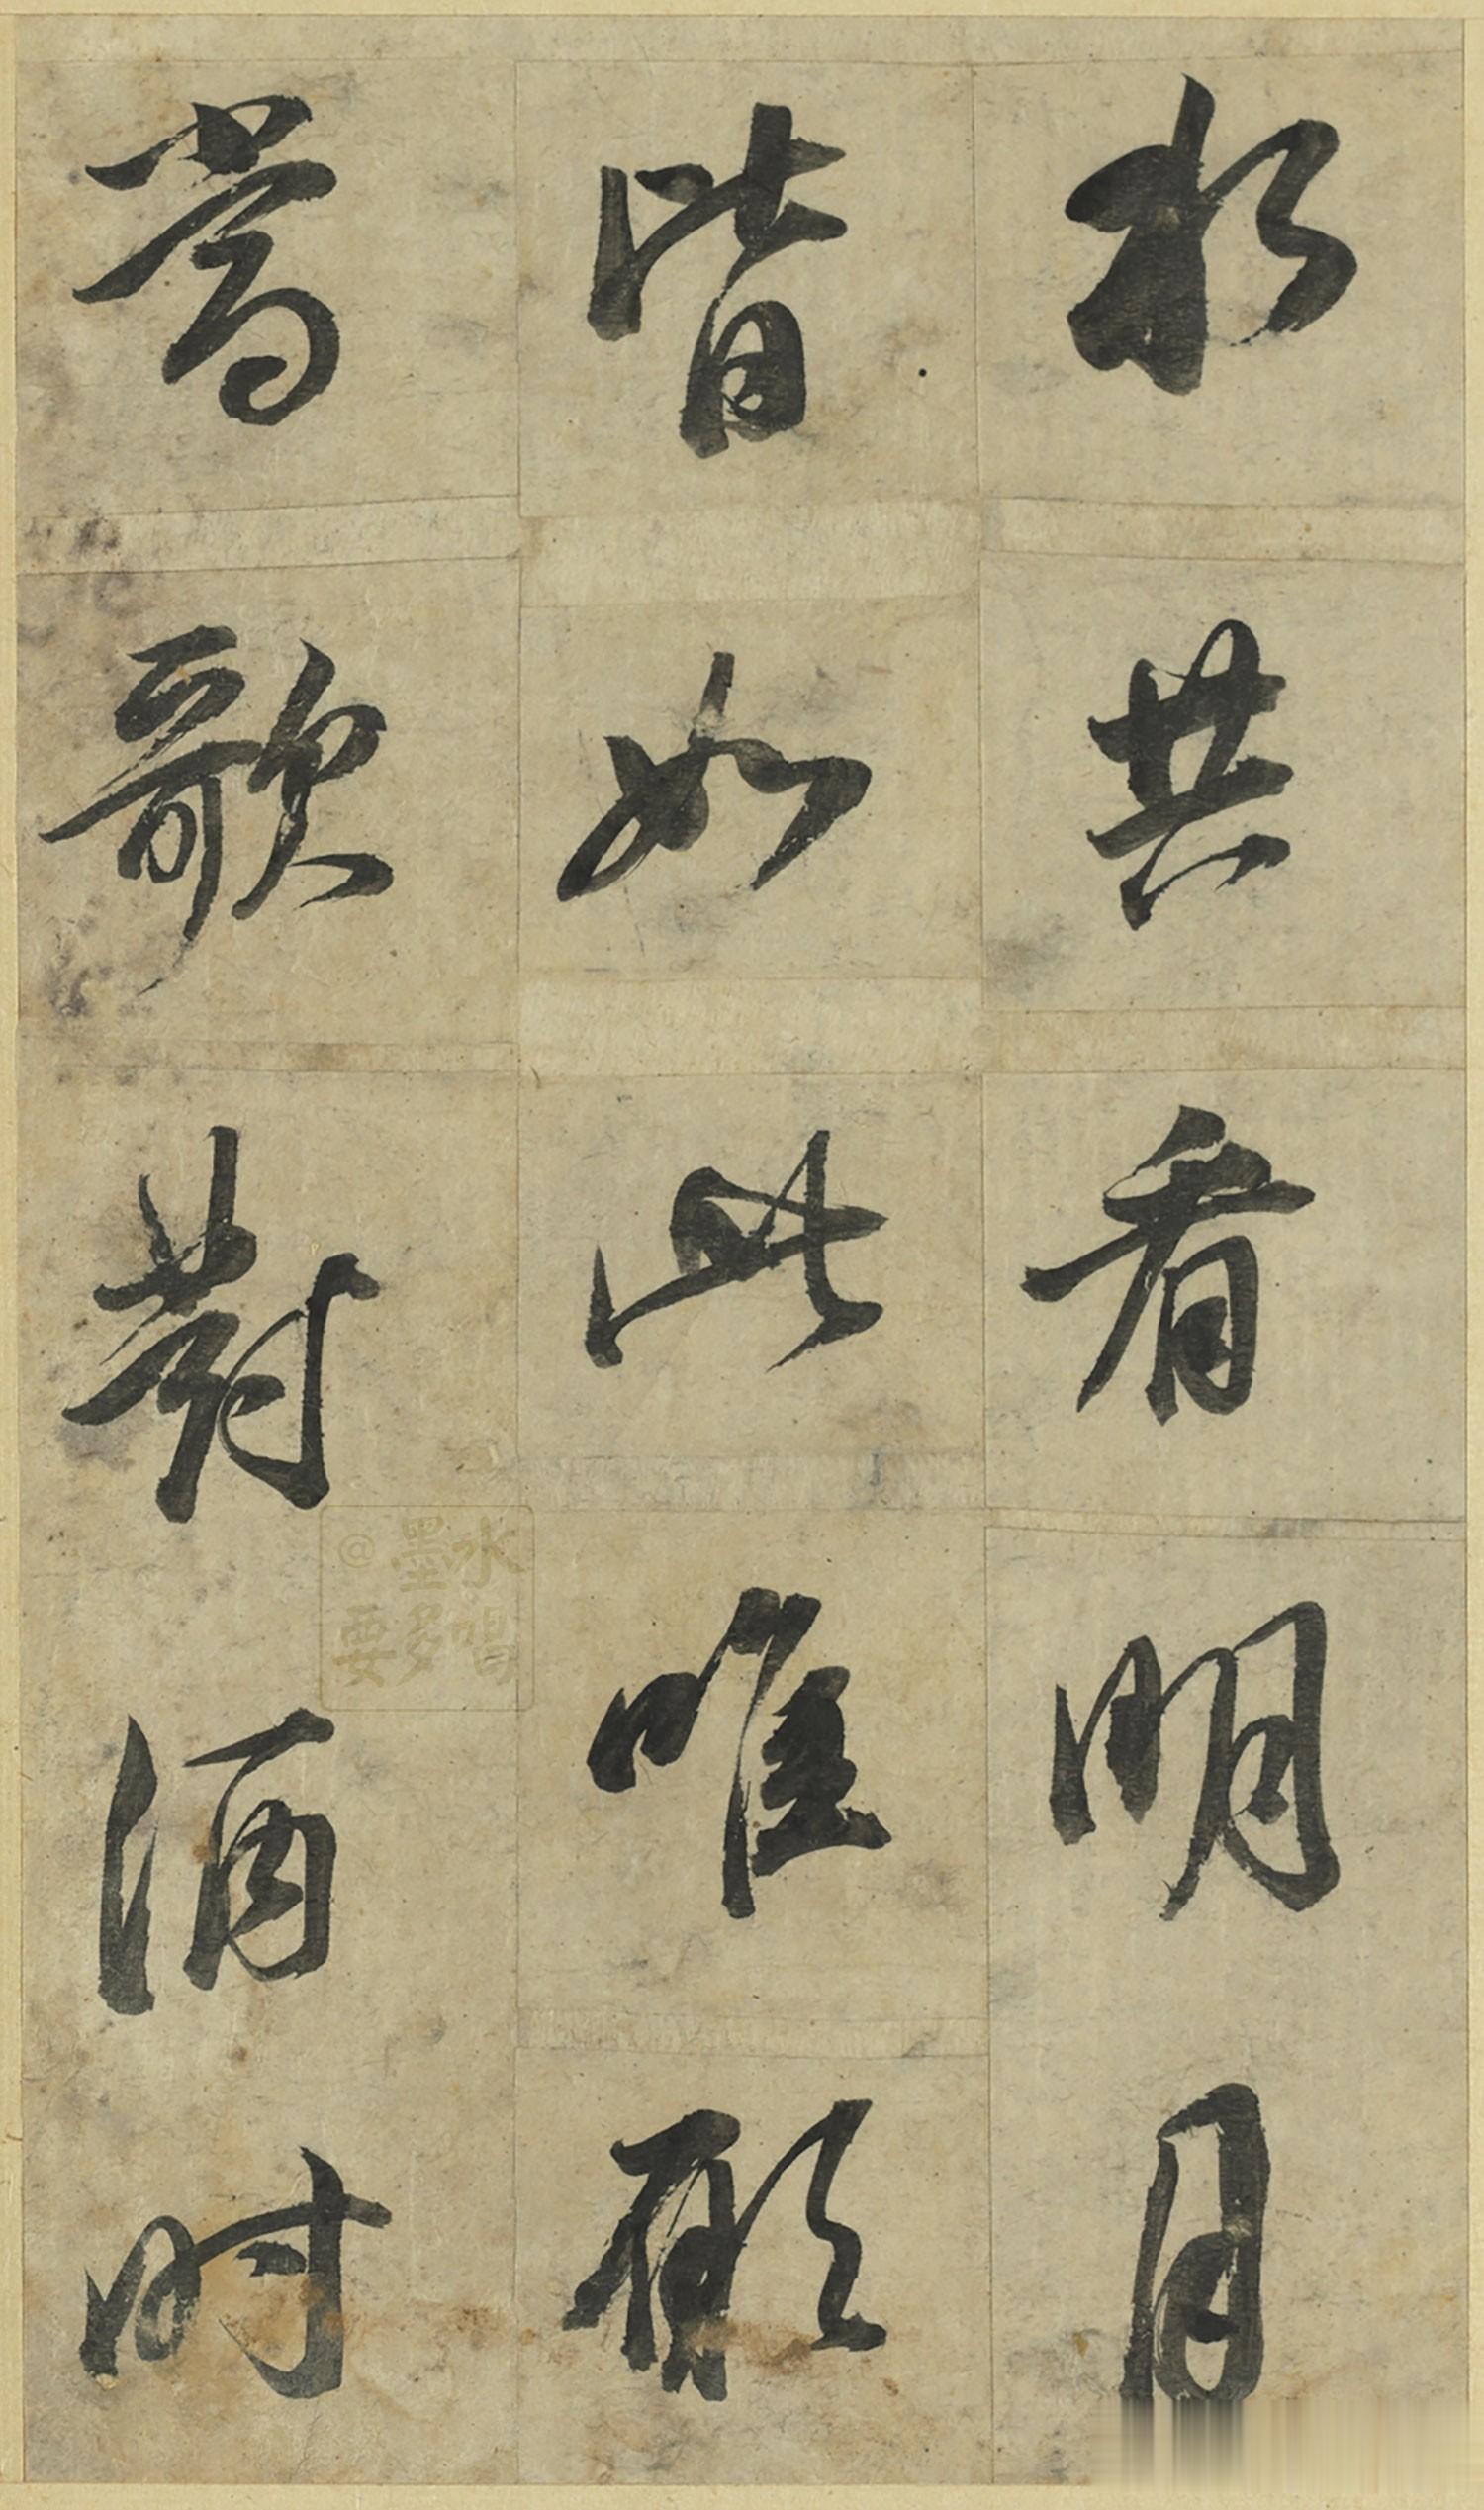 水共看明月
皆如此唯願
當歌對酒時
@水墨唱多要